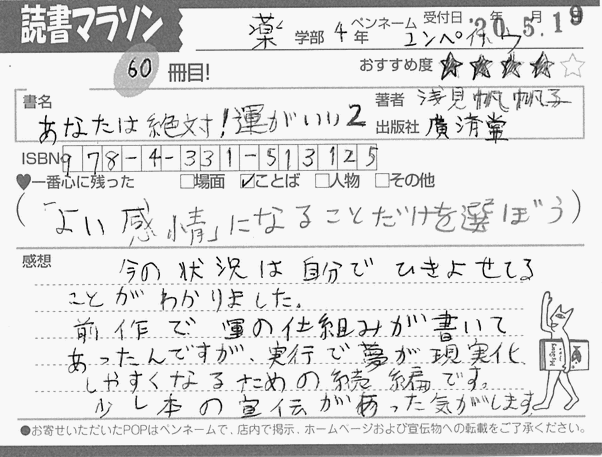 読書マラソン
薬 学部 4年 ペンネーム コンペイトウ 受付日 '20年 5月 19
60 冊目!
おすすめ度 ★★★★☆
書名 あなたは絶対!運がいい2
著者 浅見帆帆子
出版社 廣済堂
ISBN 978-4-331-513125
♥一番心に残った □場面 ☑ことば □人物 □その他
(「よい感情」になることだけを選ぼう)
感想
今の状況は自分でひきよせてる
ことがわかりました。
前作で運の仕組みが書いて
あったんですが、実行で夢が現実化
しやすくなるための続編です。
少し本の宣伝があった気がします
●お寄せいただいたPOPはペンネームで、店内で掲示、ホームページおよび宣伝物への転載をご了承ください。